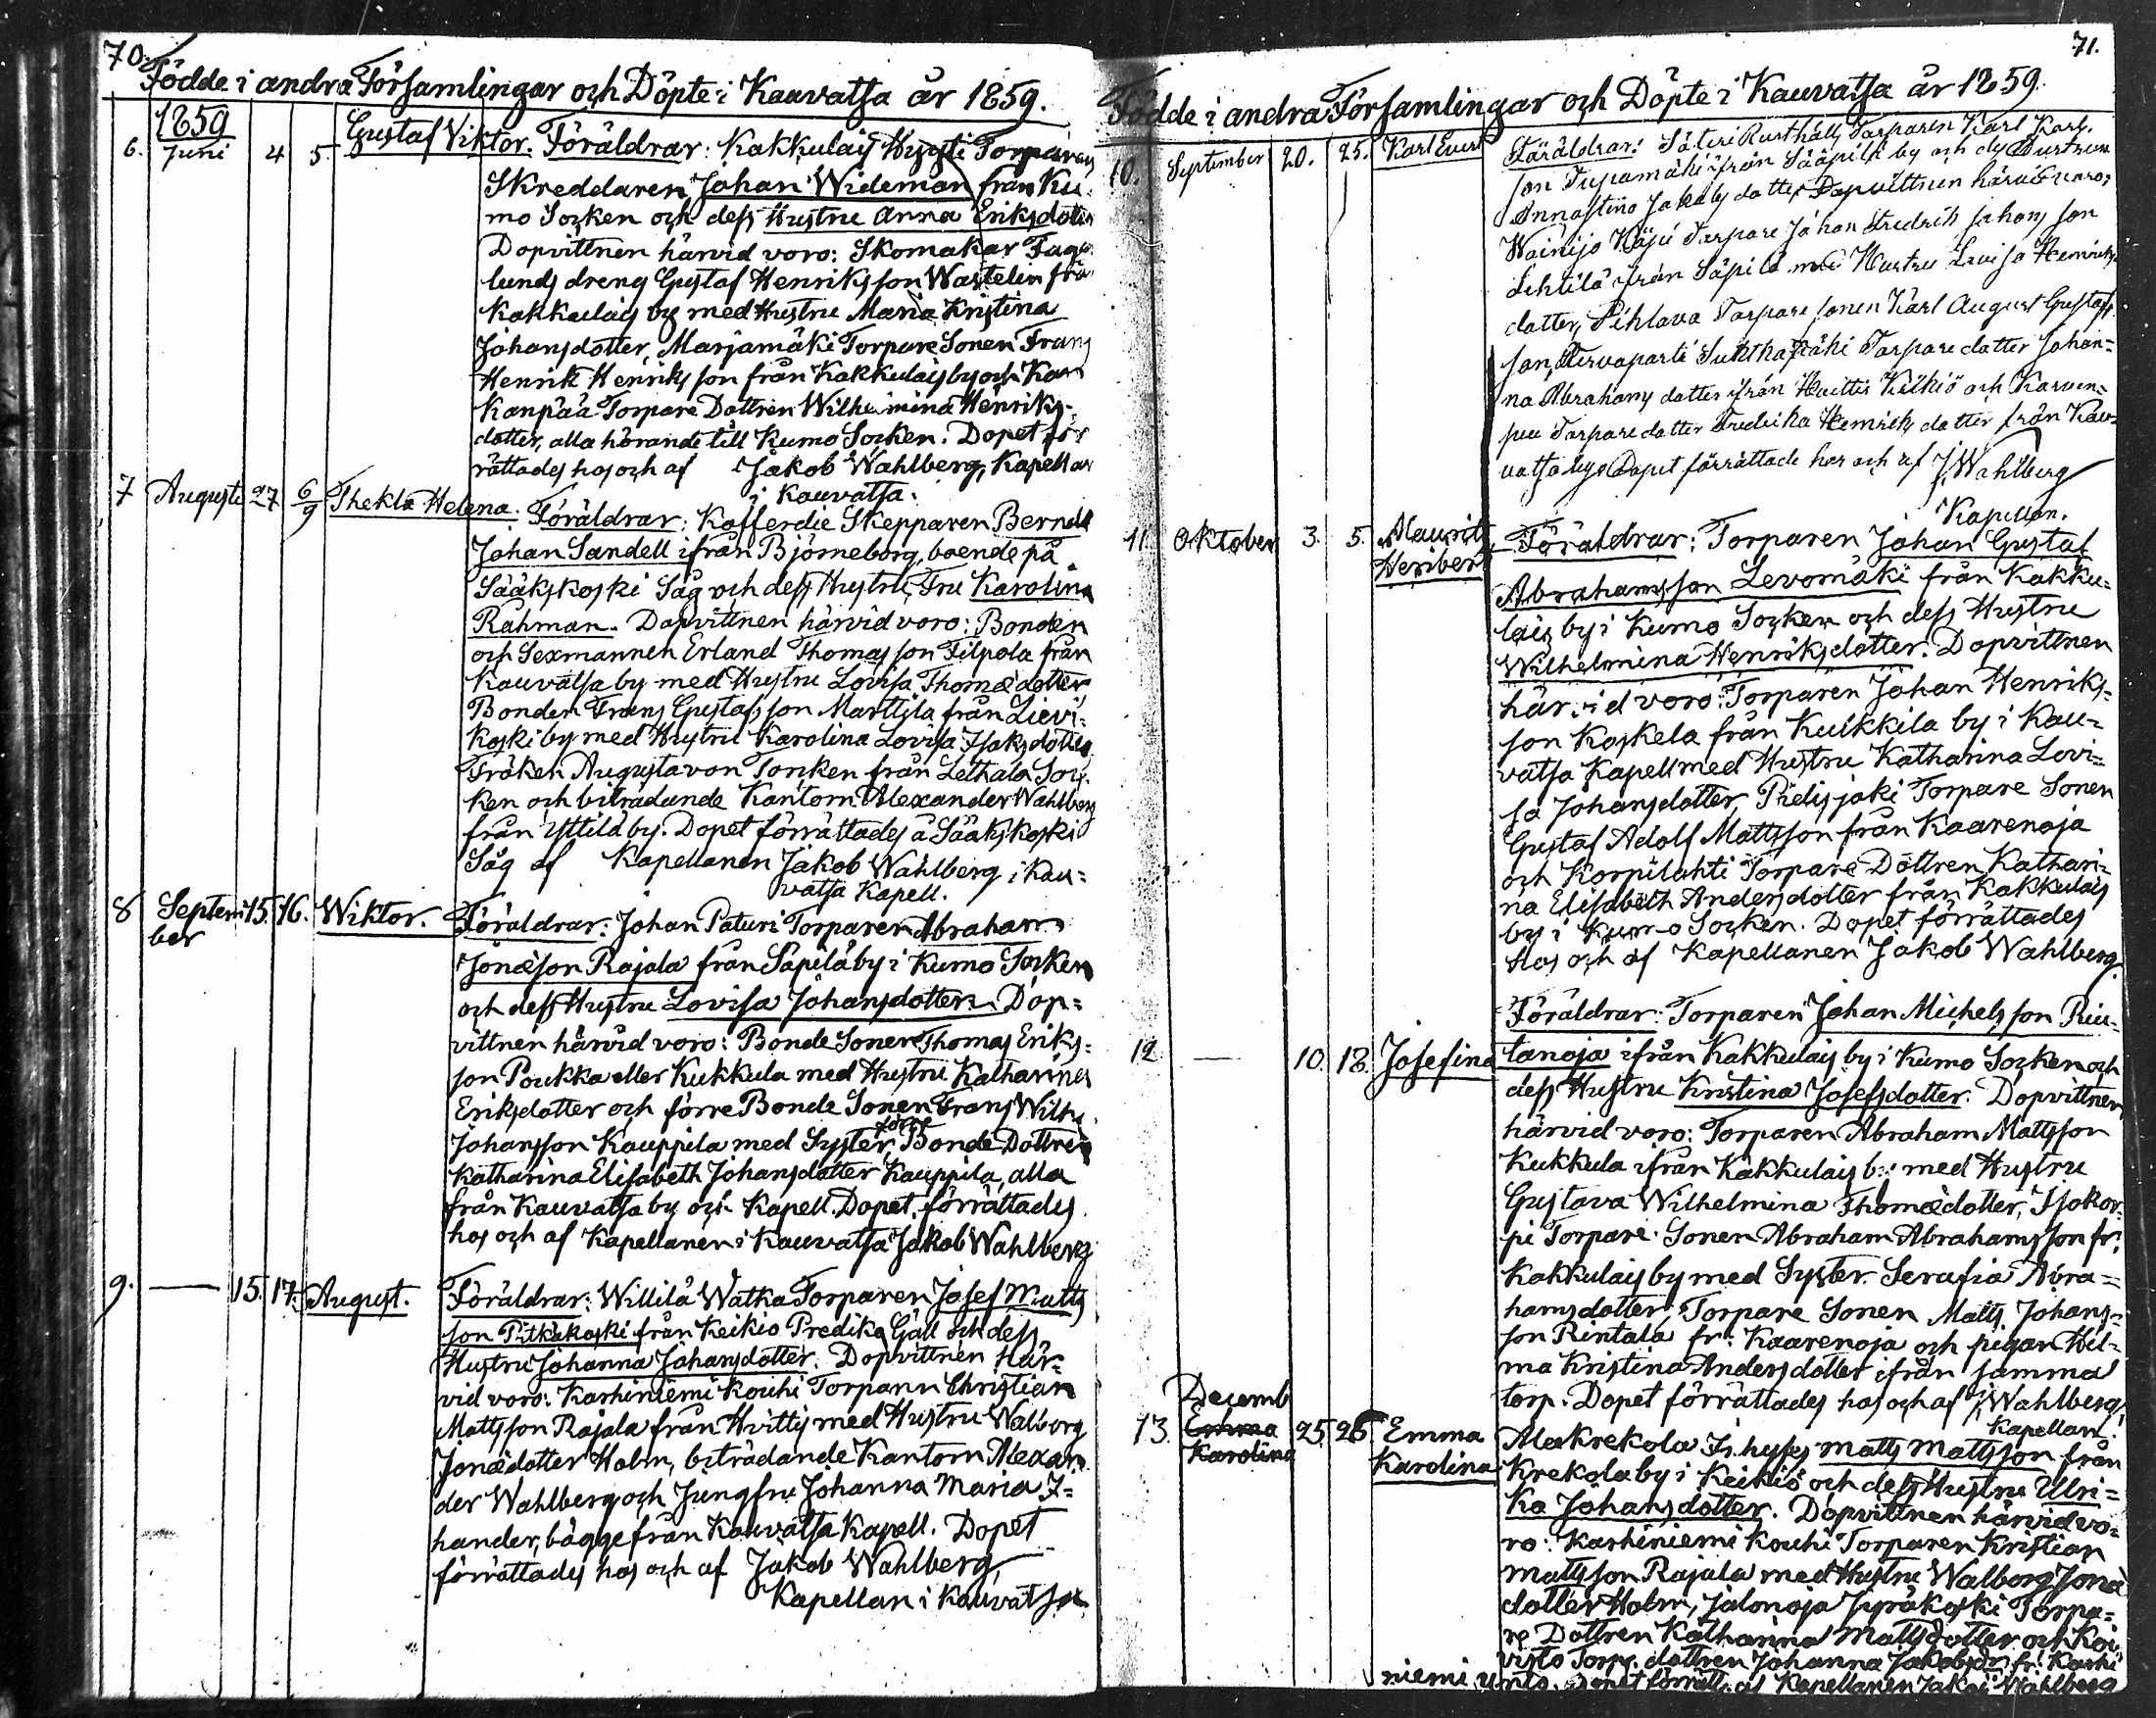 70.
Födde i andra Församlingar och Döpte i Kauvatsa år 1859.
1859
6. Juni 4 5. Gustaf Viktor. Föräldrar: Kakkulais Torparen
Skreddaren Johan Wideman från Ku-
mo Socken och dess Hustru Anna Eriksdotter
Dopvittnen härvid voro: Skomakar Fager
lunds dreng Gustaf Henriksson Wastelin från
Kakkulais by med Hustru Maria Kristina
Johansdotter, Marjamäki Torpare Sonen Frans
Henrik Henriksson från Kakkulais by och Kan
kanpää Torpare Dottren Wilhelmina Henriks-
dotter, alla hörande till Kumo Socken. Dopet för
rättades hos och af Jakob Wahlberg, Kapellan
i Kauvatsa.
7 Augusti 27 6/9 Thekla Helena. Föräldrar: Kofferdie Skepparen Berndt
Johan Sandell ifrån Björneborg, boende på
Sääkskoski Såg och dess Hustru, Fru Karolina
Rahman. Dopvittnen härvid voro: Bonden
och Sexmannen Erland Thomasson Filpola från
Kauvatsa by med Hustru Lovisa Thomædotter
Bonden Frans Gustafsson Marttila från Lievi-
koski by med Hustru Karolina Lovisa Isaksdotter
Fröken Augusta von Torcken från Lethala Soc-
ken och biträdande Kantorn Alexander Wahlberg
från Yttilä by. Dopet förrättades å Sääkskoski
Såg af Kapellanen Jakob Wahlberg i Kau-
vatsa Kapell.
8 Septem 15. 16. Wiktor. Föräldrar: Johan Paturi Torparen Abraham
ber
Jonæson Rajala från Säpilä by i Kumo Socken
och dess Hustru Lovisa Johansdotter. Dop-
vittnen härvid voro: Bonde Sonen Thomas Eriks-
son Poukka eller Kukkula med Hustru Katharina
Eriksdotter och förre Bonde Sonen Frans Wilh.
Johansson Kauppila med Syster, förre Bonde Dottren
Katharina Elisabeth Johansdotter Kauppila, alla
från Kauvatsa by och Kapell. Dopet förrättades
hos och af Kapellanen i Kauvatsa Jakob Wahlberg
9. — 15. 17. August. Föräldrar: Willilä Watka Torparen Josef Matts
son Pitkäkoski från Keikio Predikogäll och dess
Hustru Johanna Johansdotter. Dopvittnen här-
vid voro: Karhiniemi Kouhi Torparen Christian
Mattsson Rajala från Hvittis med Hustru Walborg
Jonædotter Holm, biträdande Kantorn Alexan
der Wahlberg och Jungfru Johanna Maria I-
hander, bägge från Kauvatsa Kapell. Dopet
förrättades hos och af Jakob Wahlberg,
Kapellan i Kauvatsa
71.
Födde i andra Församlingar och Döpte i Kauvatsa år 1859.
10. September 20. 25. Karl Evert Föräldrar: Säteri Rusthålls Torparen Karl Karls
son Tupamäki ifrån Sääpilä by och ds Hustrun
Annastina Jakobs dotter Dopvittnen härvid varo;
Wainijo Torpare Johan Fredrik Johans son
Lehtilä från Säpilä med Hustru Lovisa Henriks
dotter, Pihlava Torpare sonen Karl August Gustafs
son, Suthamäki Torpare dotter Johan-
na Abrahams dotter ifrån Huittis Keikiö och Karvan-
Torpare dotter Fredrika Henriks dotter från Kau-
vatsa by. Dopet förrättade hos och af J. Wahlberg
Kapellan.
11. Oktober 3. 5. Maurits Föräldrar: Torparen Johan Gustaf
Heribert
Abrahamsson Levomäki från Kakku-
lais by i Kumo Socken och dess Hustru
Wilhelmina Henriksdotter. Dopvittnen
härvid voro: Torparen Johan Henriks-
son Koskela från Kulkkila by i Kau-
vatsa Kapell med Hustru Katharina Lovi-
sa Johansdotter, Torpare Sonen
Gustaf Adolf Mattsson från Kaarenoja
och Korpilahti Torpare Dottren Kathari-
na Elisabeth Andersdotter från Kakkulais
by i Kumo Socken. Dopet förrättades
Hos och af Kapellanen Jakob Wahlberg.
Föräldrar: Torparen Johan Michelsson Riu-
12 — 10. 18. Josefina tanoja ifrån Kakkulais by i Kumo Socken och
dess Hustru Kristina Josefsdotter. Dopvittnen
härvid voro: Torparen Abraham Mattsson
Kukkula ifrån Kakkulais by med Hustru
Gustava Wilhelmina Thomædotter, Isokor-
pi Torpare Sonen Abraham Abrahamsson fr:
Kakkulais by med Syster Serafia Abra-
hamsdotter, Torpare Sonen Matts Johans-
son Rintala fr: Kaarenoja och pigan Hil-
ma Kristina Andersdotter ifrån samma
torp. Dopet förrättades hos och af J. Wahlberg,
Kapellan.
Decemb
13. Emma 25. 26 Emma Alakrekola Matts Mattsson från
Karolina Karolina Krekola by i Keikiö och dess Hustru Ulri-
ka Johansdotter. Dopvittnen härvid vo-
ro: Karhiniemi Kouhi Torparen Kristian
Mattsson Rajala med Hustru Walborg Jonæ
dotter Holm, Jalonoja Jyräkoski Torpa-
re Dottren Katharina Mattsdotter och Koi
visto Torp. dottren Johanna Jakobsdr. fr. Karhi
niemi Dopet förrätt. af Kapellanen Jakob Wahlberg